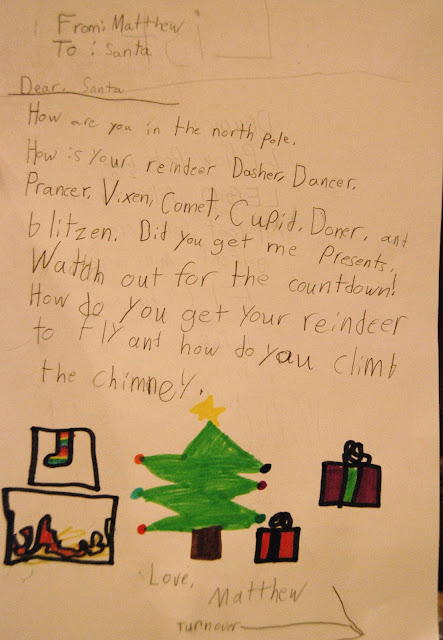 From: Matthew
To: Santa
Dear, Santa
How are you in the north pole.
How is your reindeer Dasher, Dancer,
Prancer, Vixen, Comet, Cupid, Doner, and
blitzen. Did you get me Presents.
Watth out for the countdown!
How do you get your reindeer
to Fly and how do you climb
the chimney.
Love,
Matthew
Turnover